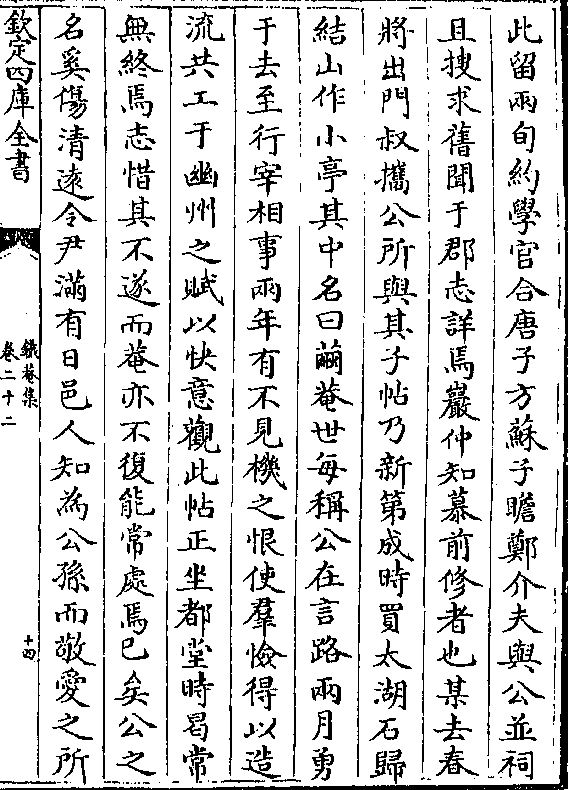 此留兩旬約學官合唐子方蘇子瞻鄭介夫與公並祠
且搜求舊聞于郡志詳焉巖仲知慕前修者也某去春
將出門叔攜公所與其子帖乃新第成時買太湖石歸
結山作小亭其中名曰繭菴世每稱公在言路兩月勇
于去至行宰相事兩年有不見機之恨使羣憸得以造
流共工于幽州之賦以快意觀此帖正坐都堂時曷常
無終焉志惜其不遂而菴亦不復能常處焉已矣公之
名奚傷清遠令尹滿有日邑人知為公孫而敬愛之所
欽定四庫全書
鐵菴集
卷二十二
十四